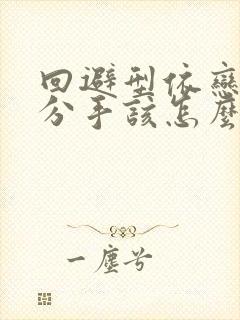 回避型依戀
分手該怎麼
一塵兮